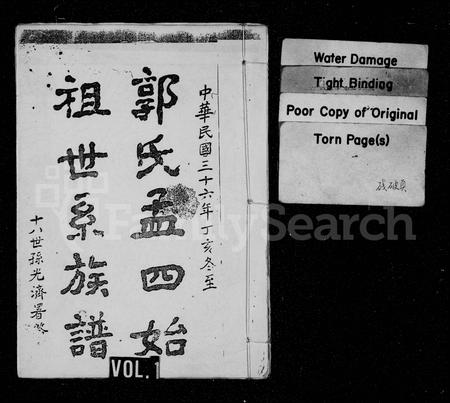 中華民國三十六年丁亥冬至
郭氏孟四始
祖世系族譜
十八世孫光濟署
VOL. 1
Water Damage
Tight Binding
Poor Copy of Original
Torn Page(s)
FamilySearch